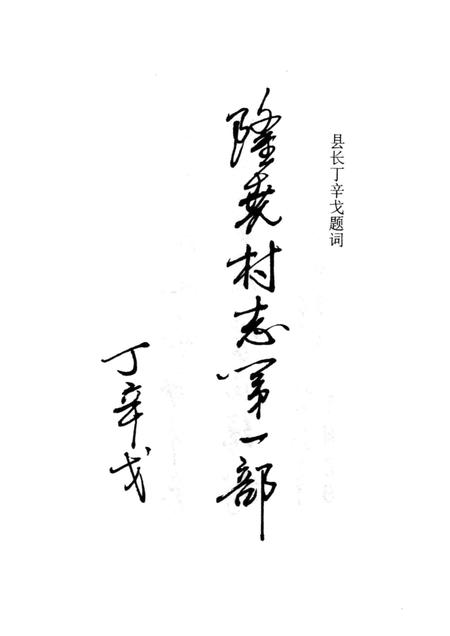 县长丁辛戈题词
隆尧村志第一部
丁辛戈